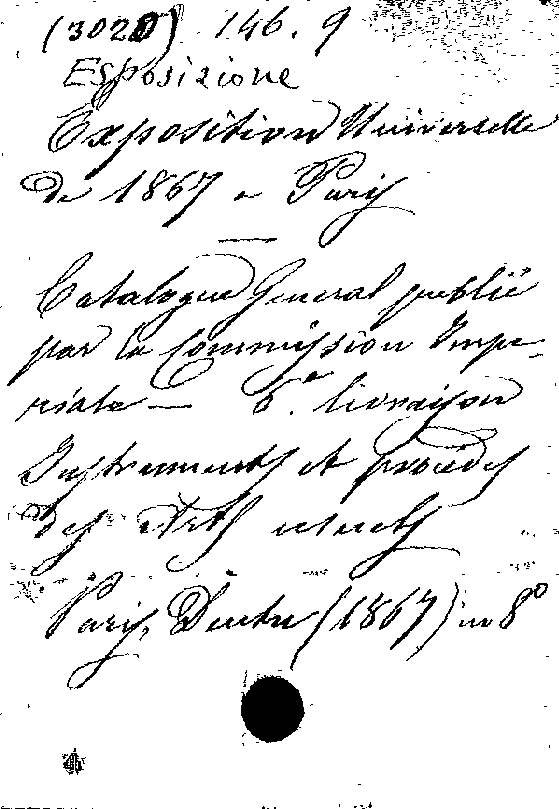 (3020) 146.9
Esposizione
Exposition Universelle
de 1867 a Paris
Catalogue General publié
par la Commission Impe-
riale — 6e livraison
Instruments et procédés
des Arts usuels
Paris, Dentu (1867) in 8º